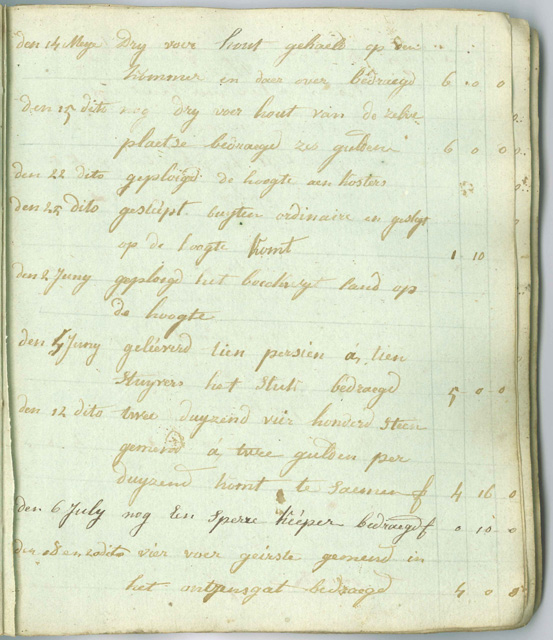 den 14 Meye Dry voer hout gehaeld op den
Kimmer en daer over bedraegd 6 . 0 0
den 15 dito nog dry voer hout van de zelve
plaetse bedraegd zes gulden 6 0 0
den 22 dito geploegd de hoogte aen kosters
den 25 dito gesleept buyten ordinaire en geslegt
op de hoogte komt 1 10
den 2 Juny geploegd het land op
de hoogte
den 5 Juny gelieverd tien persien á tien
stuyvers het stuk bedraegd 5 0 0
den 12 dito twee duyzend vier honderd steen
gemend á twee gulden per
duyzend komt te saemen f 4 16 0
den 6 July nog Een sperre bedraegd f 0 10 0
dito vier voer geirste gemend in
het bedraegd 4 0 0